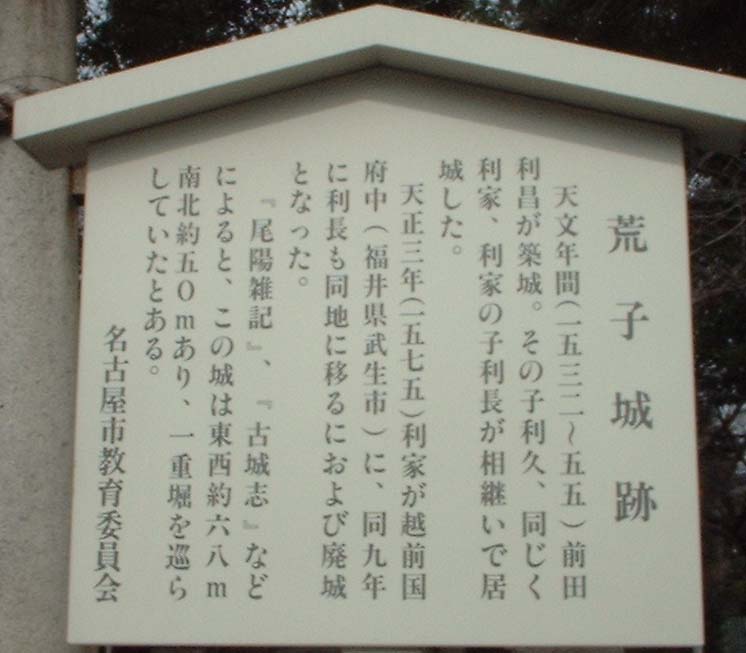 荒子城跡
天文年間（一五三二～五五）前田
利昌が築城。その子利久、同じく
利家、利家の子利長が相継いで居
城した。
天正三年（一五七五）利家が越前国
府中（福井県武生市）に、同九年
に利長も同地に移るにおよび廃城
となった。
『尾陽雑記』、『古城志』など
によると、この城は東西約六八m
南北約五〇mあり、一重堀を巡ら
していたとある。
名古屋市教育委員会